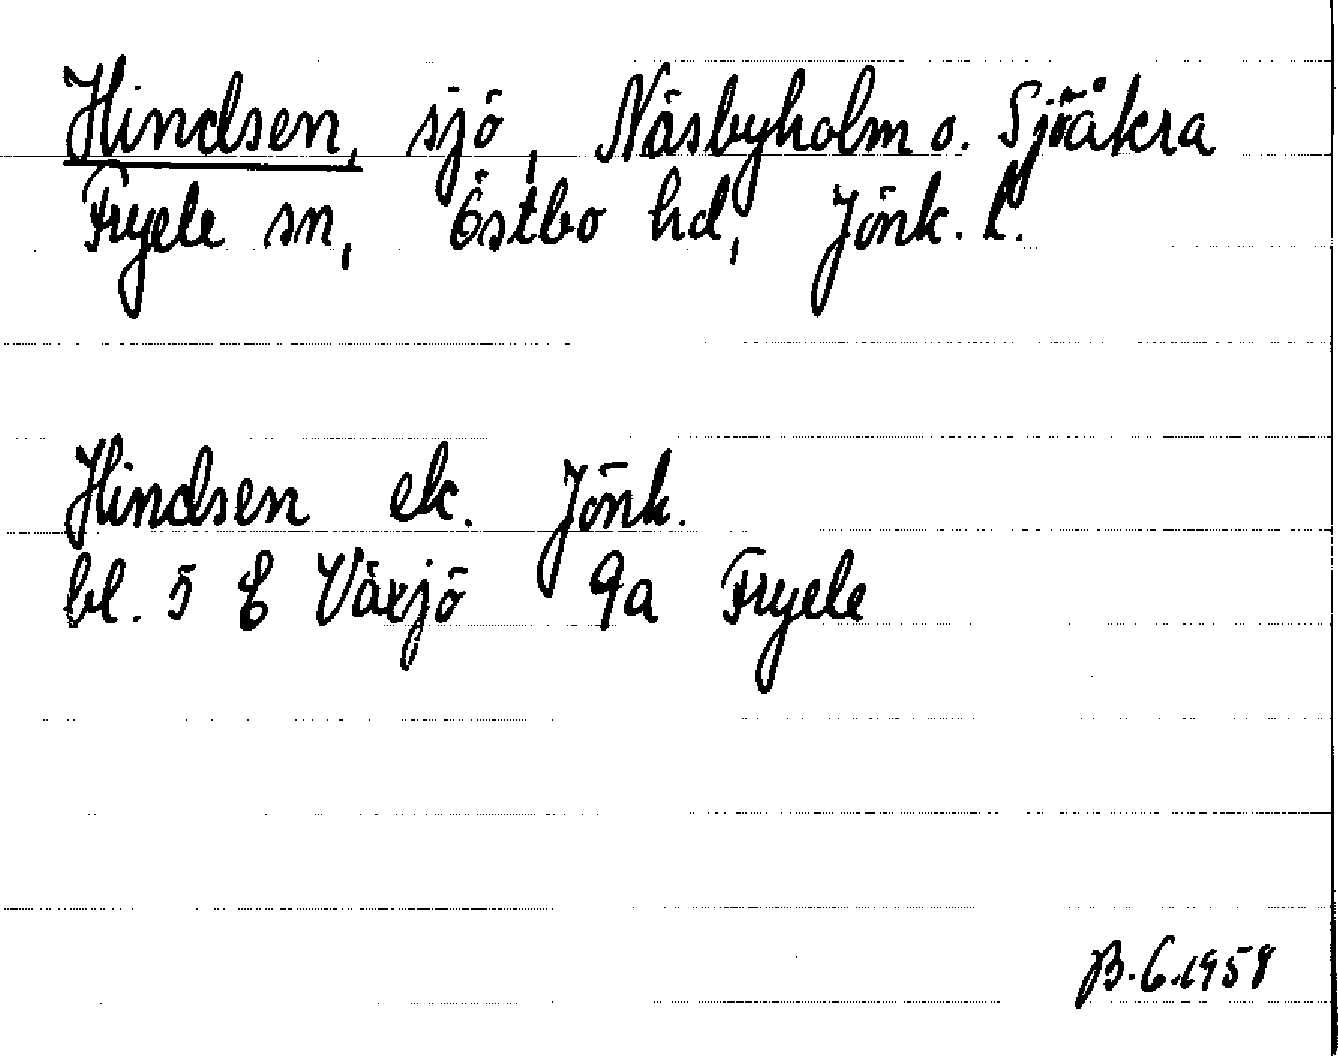 Hindsen, sjö, Näsbyholm o. Sjöåkra
Fryele sn, Östbo hd, Jönk. l.
Hindsen ek. Jönk.
bl. 5 E Växjö 9a Fryele
B.G.1958